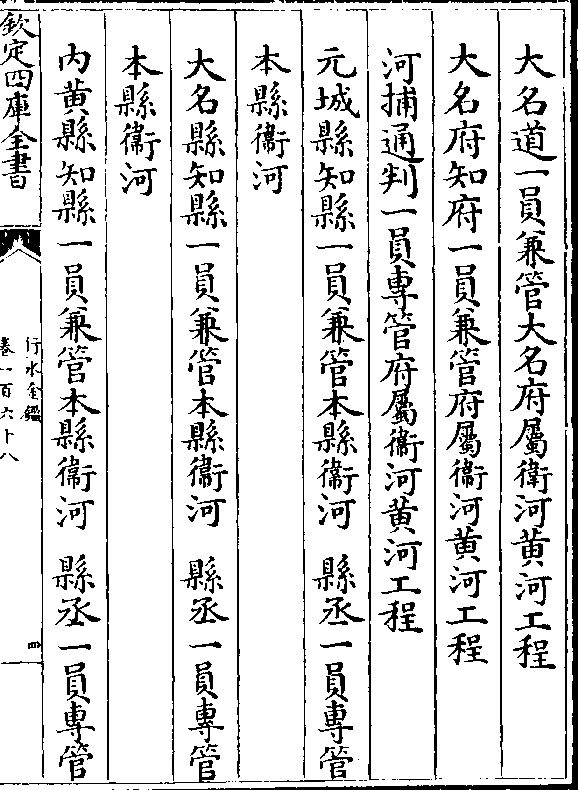 大名道一員兼管大名府屬衛河黄河工程
大名府知府一員兼管府屬衛河黄河工程
河捕通判一員專管府屬衛河黄河工程
元城縣知縣一員兼管本縣衛河　縣丞一員專管
本縣衛河
大名縣知縣一員兼管本縣衛河　縣丞一員專管
本縣衛河
内黄縣知縣一員兼管本縣衛河　縣丞一員專管
欽定四庫全書
行水金鑑
卷一百六十八
四